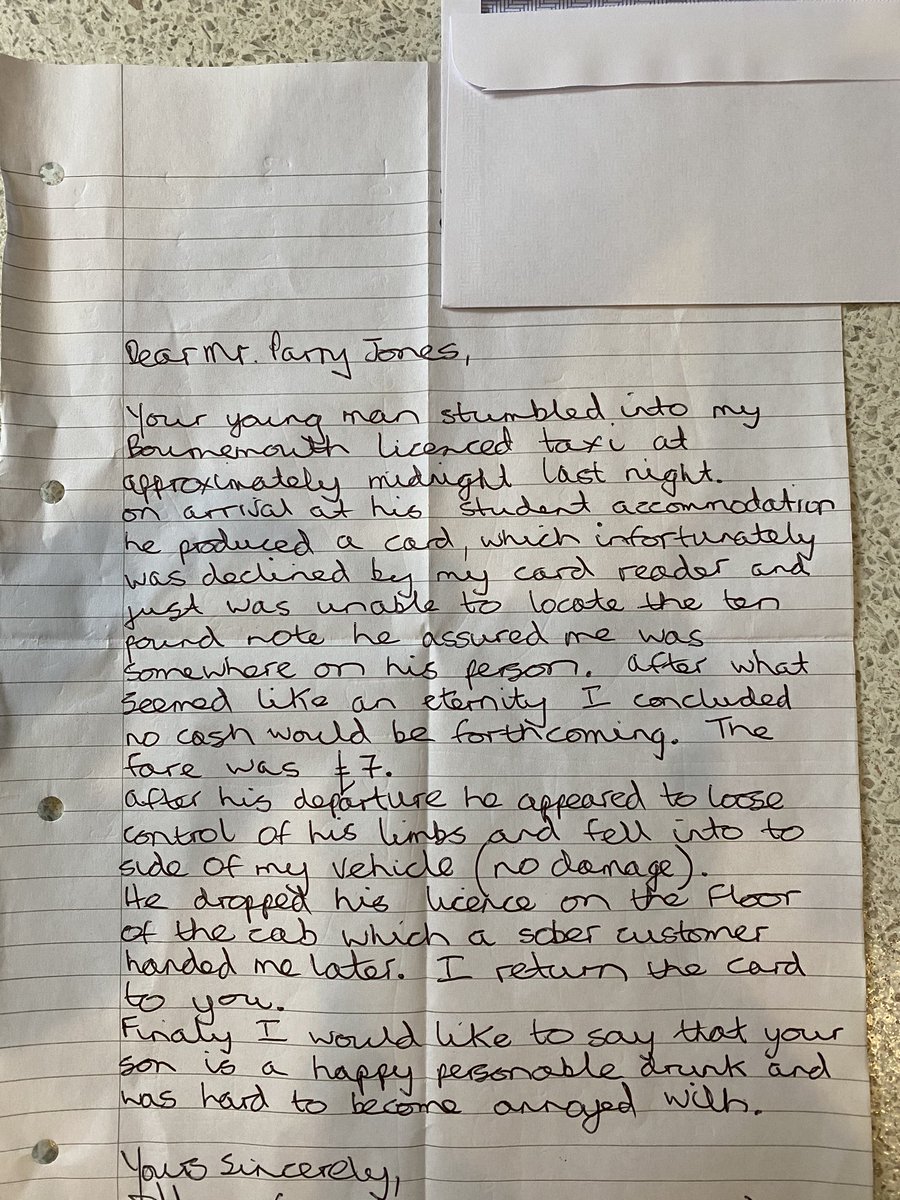 Dear Mr. Parry Jones,
Your young man stumbled into my
Bournemouth licenced taxi at
approximately midnight last night.
on arrival at his student accommodation
he produced a card, which infortunately
was declined by my card reader and
just was unable to locate the ten
pound note he assured me was
somewhere on his person. after what
seemed like an eternity I concluded
no cash would be forthcoming. The
fare was £7.
after his departure he appeared to loose
control of his limbs and fell into to
side of my vehicle (no damage).
He dropped his licence on the floor
of the cab which a sober customer
handed me later. I return the card
to you.
Finaly I would like to say that your
son is a happy personable drunk and
was hard to become annoyed with.
Yours Sincerely,